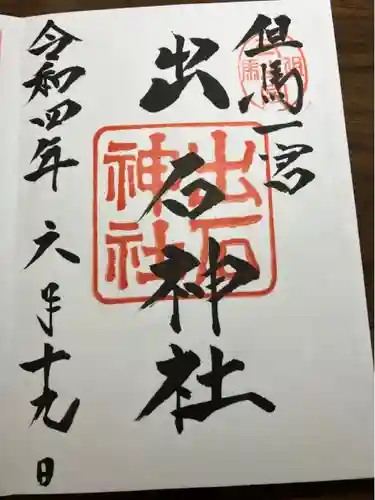 但馬一宮
出石神社
出石神社
令和四年六月十九日